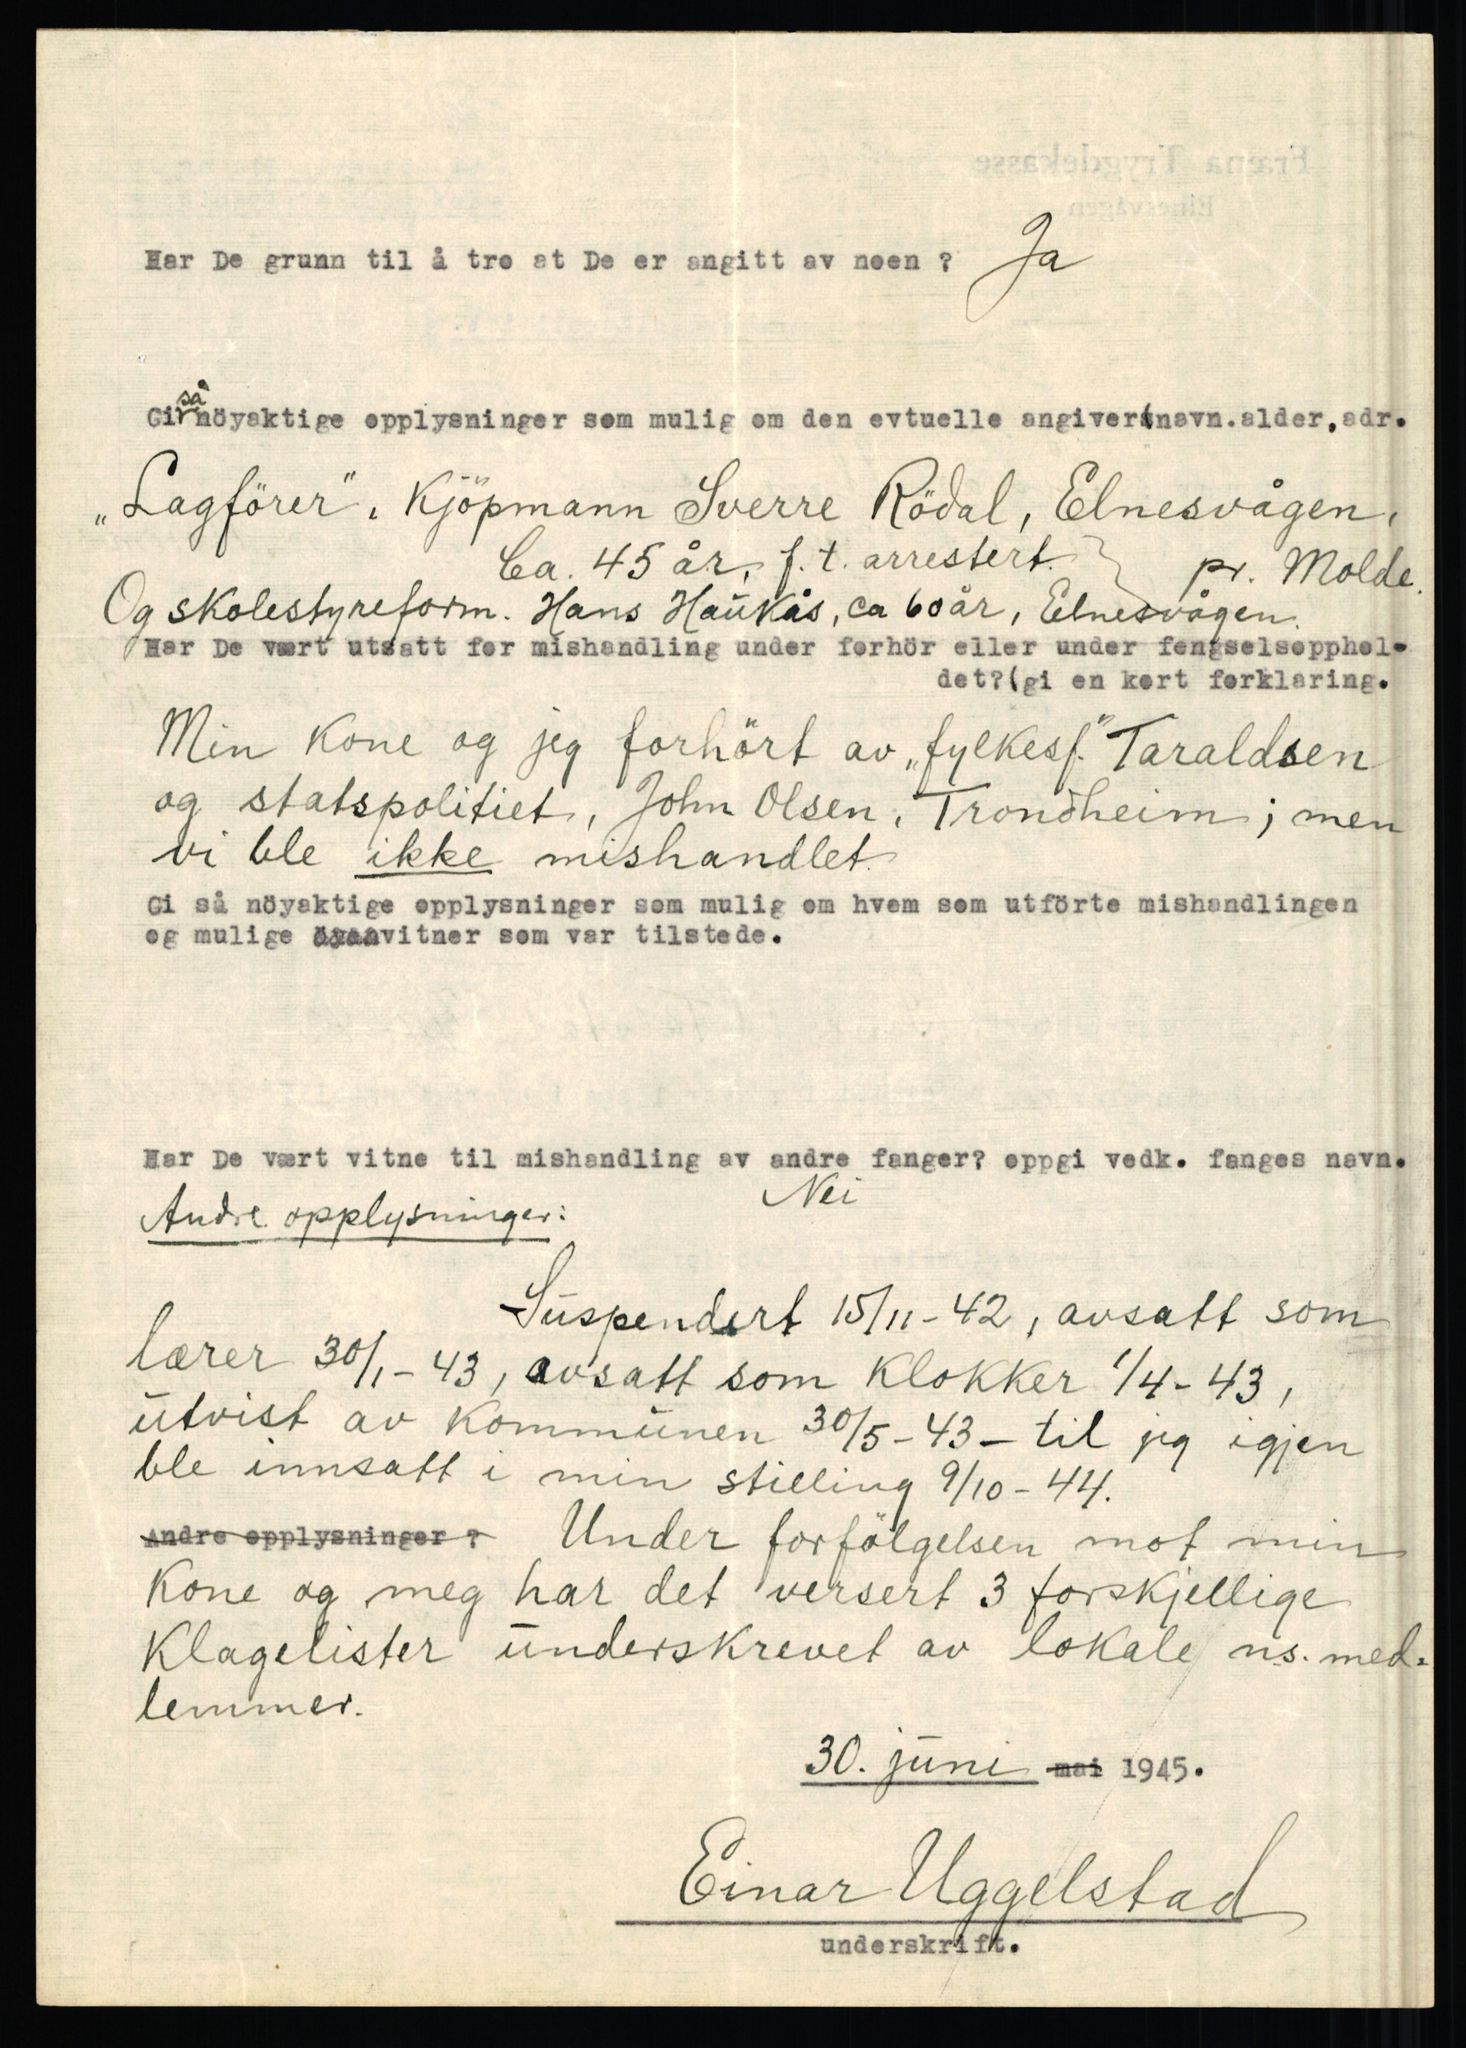 Har De grunn til å tro at De er angitt av noen ? Ja
Gi så nöyaktige opplysninger som mulig om den evtuelle angiver(navn.alder.adr.
„Lagförer“, Kjöpmann Sverre Rödal, Elnesvågen,
Ca. 45 år, f. t. arrestert. pr. Molde.
Og skolestyreform. Hans Haukås, ca 60 år, Elnesvågen.
Har De vært utsatt for mishandling under forhör eller under fengselsopphol-
det?(gi en kort forklaring.
Min kone og jeg forhört av „fylkesf.“ Taraldsen
og statspolitiet, John Olsen, Trondheim; men
vi ble ikke mishandlet.
Gi så nöyaktige opplysninger som mulig om hvem som utförte mishandlingen
og mulige vitner som var tilstede.
Har De vært vitne til mishandling av andre fanger? oppgi vedk. fanges navn.
Nei
Andre opplysninger:
Suspendert 15/11-42, avsatt som
lærer 30/1-43, avsatt som klokker 1/4-43,
utvist av kommunen 30/5-43 - til jeg igjen
ble innsatt i min stilling 9/10-44.
Andre opplysninger ? Under forfölgelsen mot min
kone og meg har det versert 3 forskjellige
klagelister underskrevet av lokale n.s. med-
lemmer.
30. juni mai 1945.
Einar Uggelstad
underskrift.